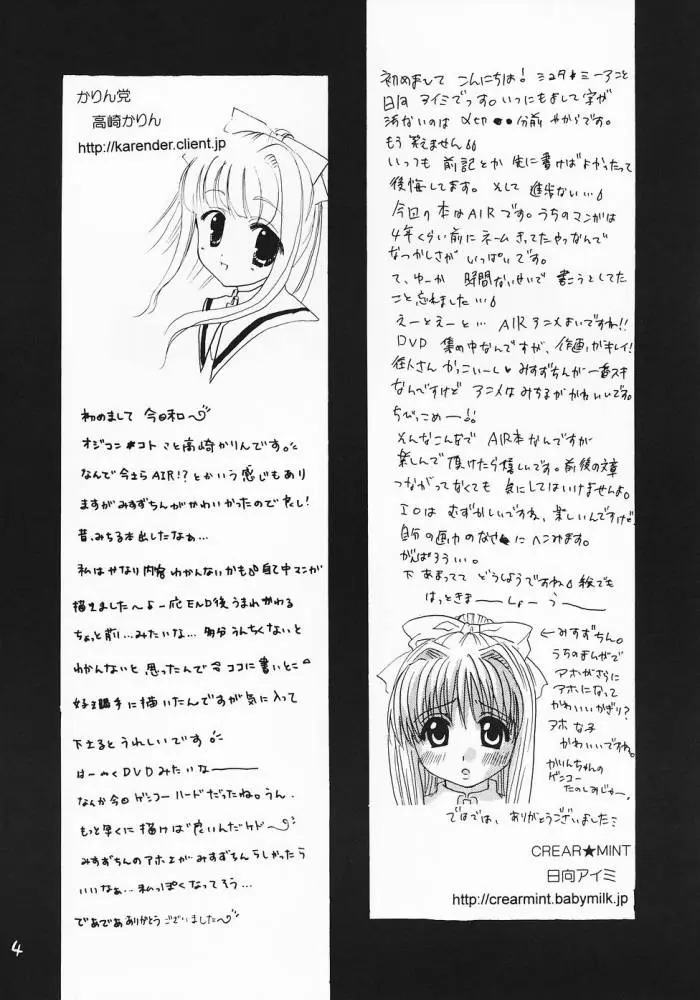 初めまして こんにちは! ミユタ★ミーアこと
日向 アイミでっす。いつにもまして字が
汚ないのは 〆切●●分前 やからです。
もう 笑えません
いっつも 前記とか 先に書けばよかったって
後悔してます。そして 進歩ない…
今回の本はAIRです。うちのマンガは
4年くらい前にネームきってたやつなんで
なつかしさが いっぱいです。
て、ゆーか 時間ないせいで 書こうとしてた
こと忘れました…
えーとえーと… AIRアニメよいですね!!
DVD 集め中なんですが、作画がキレイ!
往人さん かっこいーし みすずちんが一番スキ
なんですけど アニメは みちるが かわいいです。
ちびっこめー!!
そんなこんなで AIR本なんですが
楽しんで 頂けたら嬉しいです。前後の文章
つながってなくても 気にしてはいけませんよ。
自分の画力のなさにヘこみます。
がんばろうぃ。
下 あまってて どうしようですね 絵でも
はっときまーーしょーう
←みすずちん。
うちのまんがで
アホがさらに
アホになって
かわいいかぎり?
アホな子
かわいいですね。
かりんちゃんの
ゲンコー
たのしみじゃー。
ではでは、ありがとうございました
CREAR★MINT
日向アイミ
http://crearmint.babymilk.jp
かりん党
高崎かりん
http://karender.client.jp
初めまして 今日和
オジコン★コトさと高崎かりんです。
なんで今さらAIR!?とかいう感じもあり
ますがみすずちんがかわいかったので良し!
昔、みちる本出したなぁ…
私はせなり内容わかんないかも 自己中マンガ
描きました〜よ 一応END後うまれかわる
ちょっと前…みたいな… 多分うんちくないと
わかんないと 思ったんで今ココに書いとこ
好き勝手に描いたんですが気に入って
下さるとうれしいです。
はーゃくDVDみたいなーーー
なんか今回ゲンコーハードだったね。うん。
もっと早くに描けば良いんだケド
みすずちんのアホ上がみすずちんらしかったら
いいなぁ…私っぽくなってそう…
であであありがとうございました
4